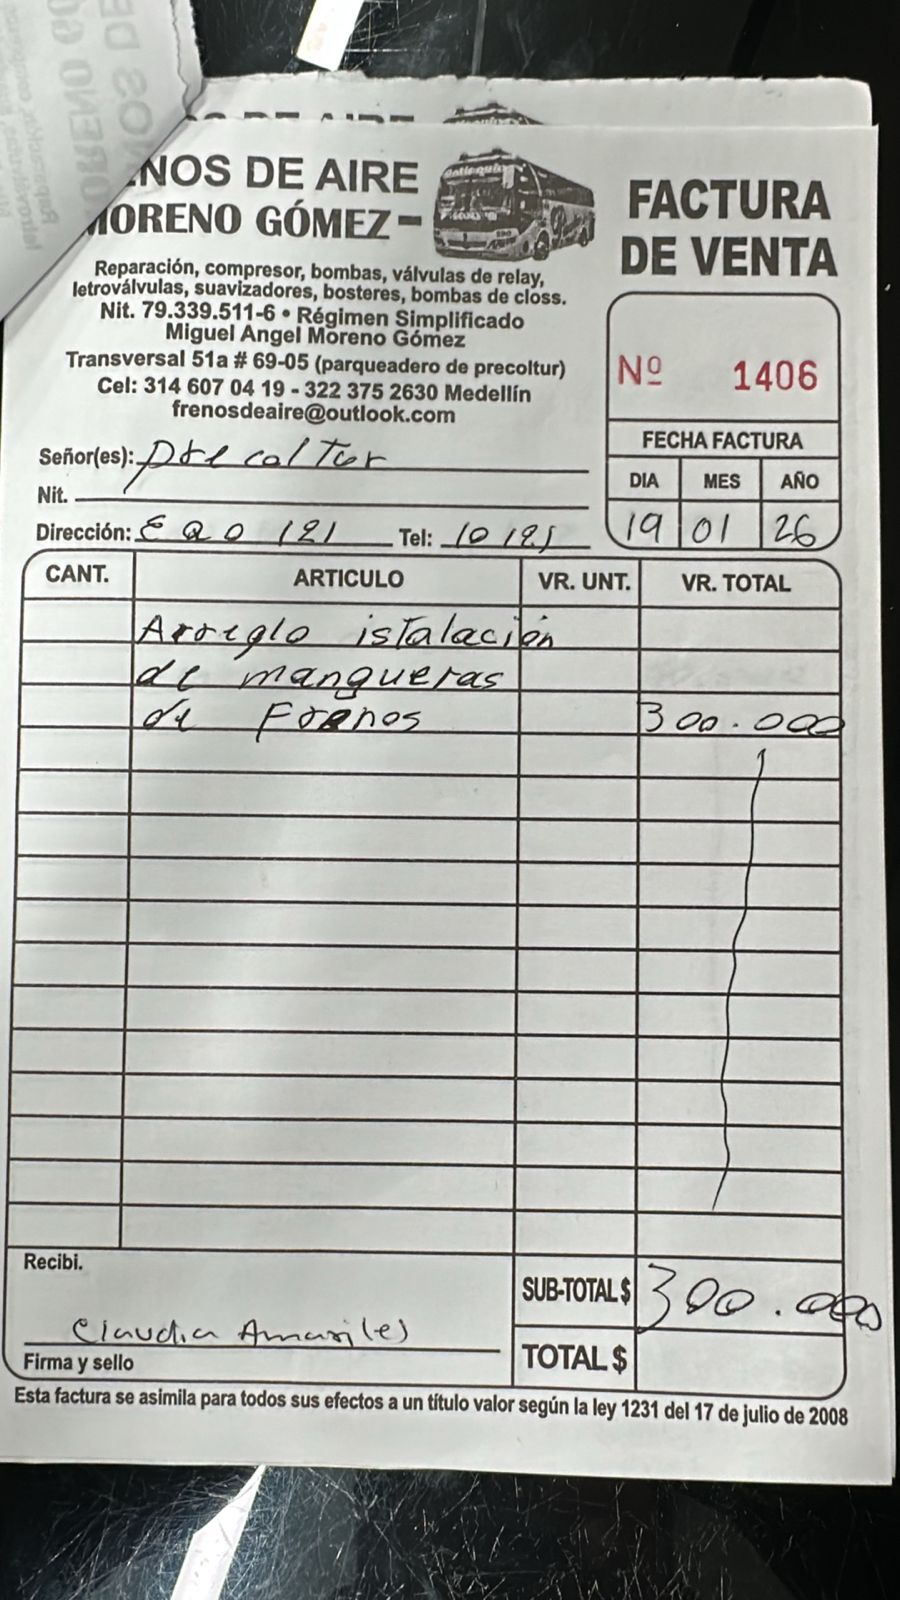 NOS DE AIRE
MORENO GÓMEZ
FACTURA
DE VENTA
Reparación, compresor, bombas, válvulas de relay,
letroválvulas, suavizadores, bosteres, bombas de closs.
Nit. 79.339.511-6 • Régimen Simplificado
Miguel Angel Moreno Gómez
Transversal 51a # 69-05 (parqueadero de precoltur)
Cel: 314 607 04 19 - 322 375 2630 Medellín
frenosdeaire@outlook.com
Nº 1406
FECHA FACTURA
DIA MES AÑO
19 01 26
Señor(es): precoltur
Nit.
Dirección: EQO 121 Tel:
CANT. ARTICULO VR. UNT. VR. TOTAL
Arreglo istalación
de mangueras
de Frenos 300.000
Recibi.
SUB-TOTAL $ 300.000
Claudia Amariles
Firma y sello
TOTAL $
Esta factura se asimila para todos sus efectos a un título valor según la ley 1231 del 17 de julio de 2008